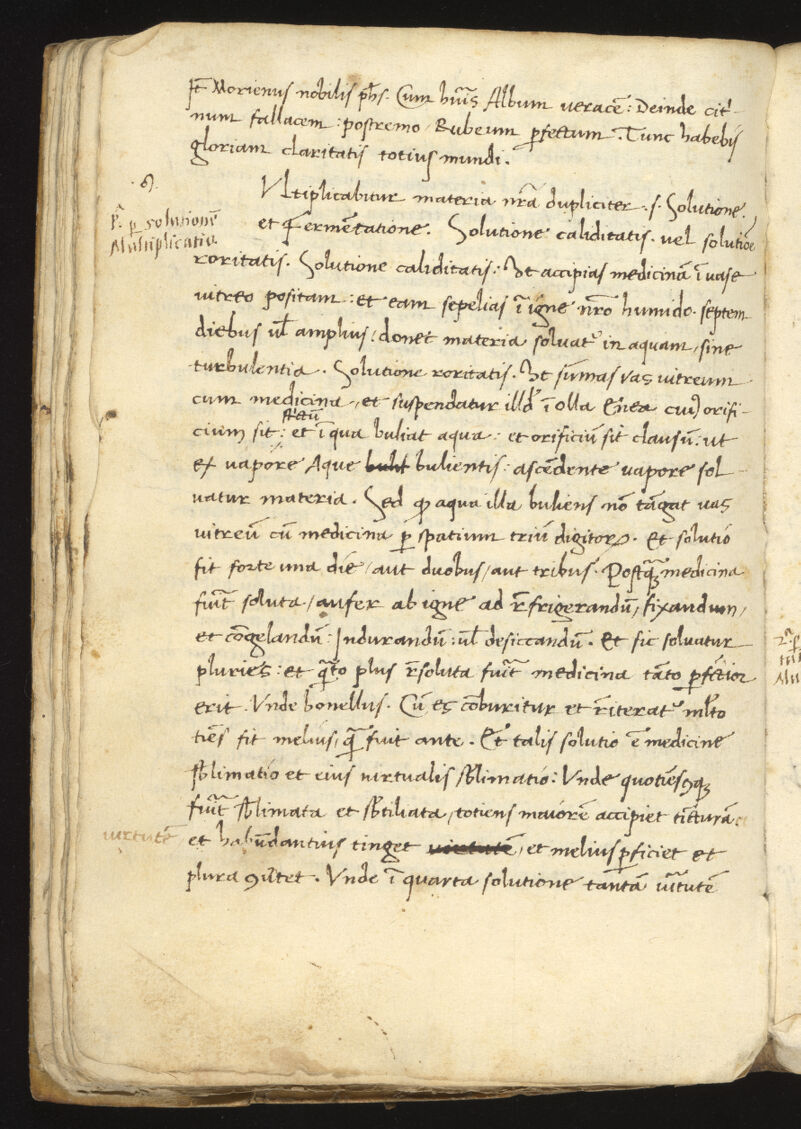 Et Morienus nobilis phs. Cum hūĩs Album veracē: Deinde citˡ-
num fallacem: postremo Rubeum perfectum. Tunc habebis
gloriam claritatis totius mundi.
Ultiplicabitur materia nrā dupliciter .s. Solutione.
et Fermētatione. Solutione caliditatis. vel solutiōe
pᵃ per solutionē
Multiplicatio
roritatis. Solutione caliditatis: Ut accipias medicinā ī vase
vitreo positam: et eam sepelias ī igne nrō humido. septem
diebus ul̄ amplius: donec materia solvatᵘ in aquam, sine
turbulentia. Solutione roritatis. Ut sūmas vas vitreum
cum medicina, et suspendatur illd' ī olla ērea cuiꝰ orifi-
strictū
cium sit: et ī qua buliat aqua: et orificiū sit clausū: ut
ex vapore Aque bulit bulientis: ascēdente vapore sol-
vatur materia. Sed ꝙ aqua illa buliens nō tāgat vas
vitreū cū medicina per spatium triū digitoꝝ. Et solutio
fit forte una die, aut duobus, aut tribus. Postꝗꝫ medicina
fūit soluta, aufer ab igne ad rēfrigerandū, fixandum,
et cōgelandū: Indurandū: ul̄ desiccandū. Et sic solvatur
pluries: et ꝗ̄to plus r̄soluta fūit medicina tāto perfectior
erit. Unde bonellus. Cū es cōburitur et r̄iteratᵘ ml̄to
tiēs fit melius, ꝗ̄ fuit ante. Et talis solutio ē medicine
sb̄limatio et eius virtualis sb̄limatio: Unde quotiēscūqꝫ
fūit sb̄limata et sb̄tiliata, totiens maiorē accipiet tīcturā:
virtutē
et habūdantius tinget virtutē, et melius perficiet et
plura ꝯūtet. Unde ī quarta solutione tantā vīrtutē